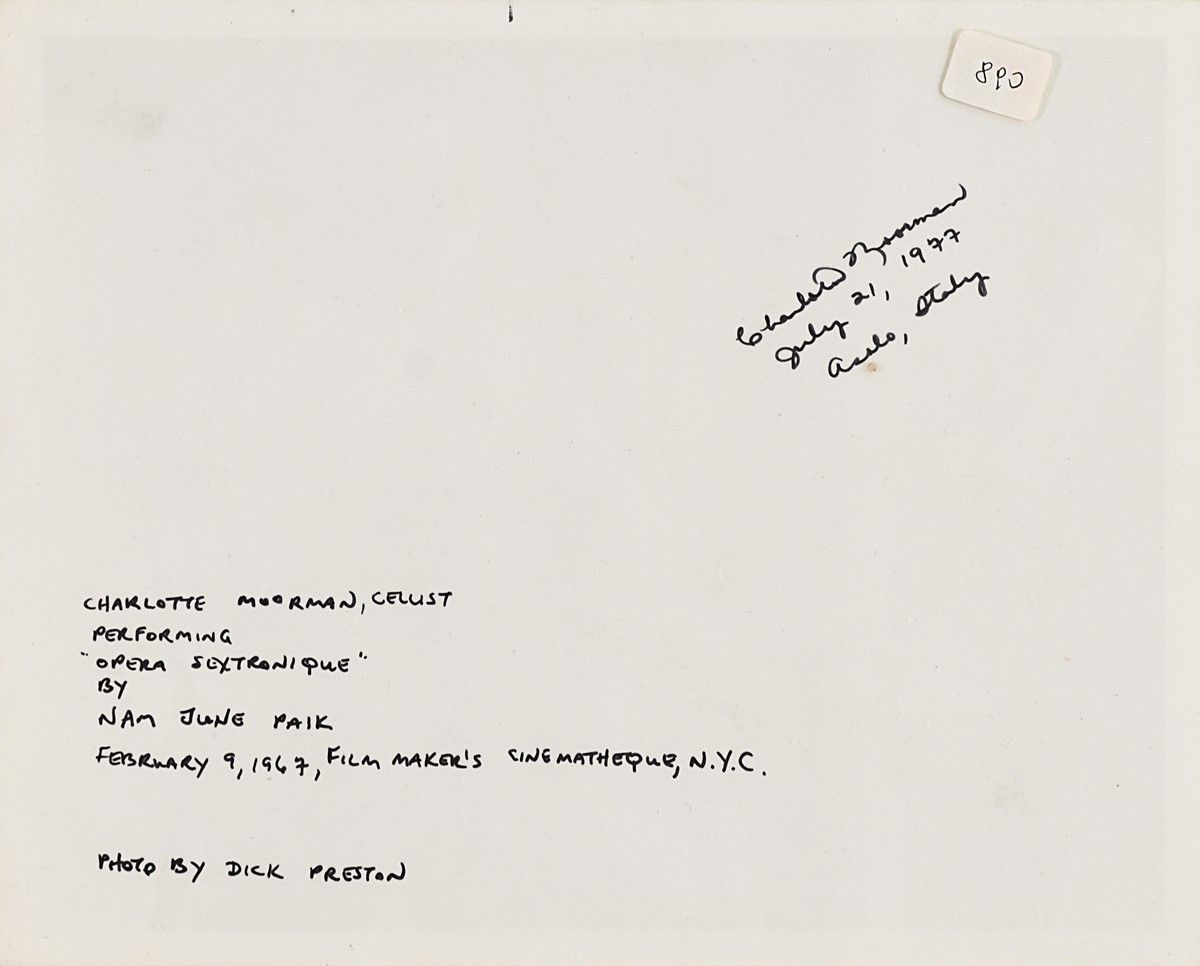 890
Charlotte Moorman
July 21, 1977
Asolo, Italy
CHARLOTTE MOORMAN, CELLIST
PERFORMING
"OPERA SEXTRONIQUE"
BY
NAM JUNE PAIK
FEBRUARY 9, 1967, FILM MAKER'S CINEMATHEQUE, N.Y.C.
PHOTO BY DICK PRESTON